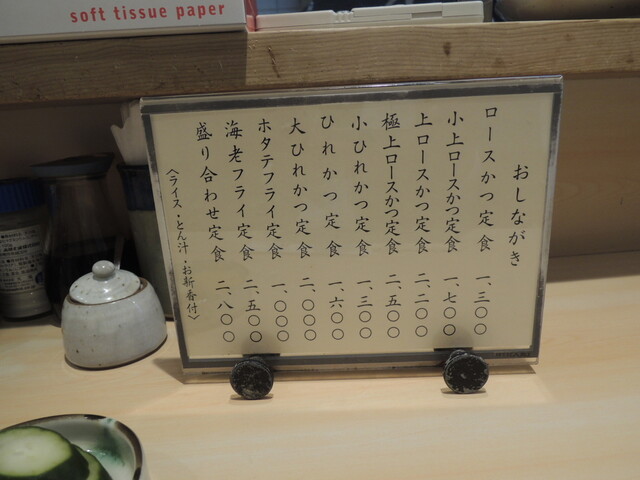 soft tissue paper
おしながき
ロースかつ定食 一、三〇〇
小上ロースかつ定食 一、七〇〇
上ロースかつ定食 二、二〇〇
極上ロースかつ定食 二、五〇〇
小ひれかつ定食 一、三〇〇
ひれかつ定食 一、六〇〇
大ひれかつ定食 二、〇〇〇
ホタテフライ定食 一、〇〇〇
海老フライ定食 二、五〇〇
盛り合わせ定食 二、八〇〇
〈ライス・とん汁・お新香付〉